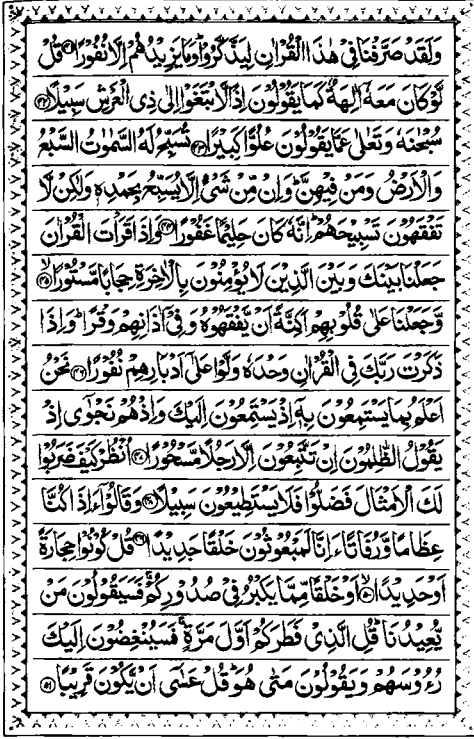 وَلَقَدْ صَرَّفْنَا فِیْ هٰذَا الْقُرْاٰنِ لِیَذَّكَّرُوْاؕ وَمَا یَزِیْدُهُمْ اِلَّا نُفُوْرًا ۝ قُلْ
لَّوْ كَانَ مَعَهٗۤ اٰلِهَةٌ كَمَا یَقُوْلُوْنَ اِذًا لَّابْتَغَوْا اِلٰی ذِی الْعَرْشِ سَبِیْلًا ۝
سُبْحٰنَهٗ وَتَعٰلٰی عَمَّا یَقُوْلُوْنَ عُلُوًّا كَبِیْرًا ۝ تُسَبِّحُ لَهُ السَّمٰوٰتُ السَّبْعُ
وَالْاَرْضُ وَمَنْ فِیْهِنَّؕ وَاِنْ مِّنْ شَیْءٍ اِلَّا یُسَبِّحُ بِحَمْدِهٖ وَلٰكِنْ لَّا
تَفْقَهُوْنَ تَسْبِیْحَهُمْؕ اِنَّهٗ كَانَ حَلِیْمًا غَفُوْرًا ۝ وَاِذَا قَرَاْتَ الْقُرْاٰنَ
جَعَلْنَا بَیْنَكَ وَبَیْنَ الَّذِیْنَ لَا یُؤْمِنُوْنَ بِالْاٰخِرَةِ حِجَابًا مَّسْتُوْرًا ۝
وَّجَعَلْنَا عَلٰی قُلُوْبِهِمْ اَكِنَّةً اَنْ یَّفْقَهُوْهُ وَفِیْۤ اٰذَانِهِمْ وَقْرًاؕ وَاِذَا
ذَكَرْتَ رَبَّكَ فِی الْقُرْاٰنِ وَحْدَهٗ وَلَّوْا عَلٰۤی اَدْبَارِهِمْ نُفُوْرًا ۝ نَحْنُ
اَعْلَمُ بِمَا یَسْتَمِعُوْنَ بِهٖۤ اِذْ یَسْتَمِعُوْنَ اِلَیْكَ وَاِذْ هُمْ نَجْوٰۤی اِذْ
یَقُوْلُ الظّٰلِمُوْنَ اِنْ تَتَّبِعُوْنَ اِلَّا رَجُلًا مَّسْحُوْرًا ۝ اُنْظُرْ كَیْفَ ضَرَبُوْا
لَكَ الْاَمْثَالَ فَضَلُّوْا فَلَا یَسْتَطِیْعُوْنَ سَبِیْلًا ۝ وَقَالُوْۤا ءَاِذَا كُنَّا
عِظَامًا وَّرُفَاتًا ءَاِنَّا لَمَبْعُوْثُوْنَ خَلْقًا جَدِیْدًا ۝ قُلْ كُوْنُوْا حِجَارَةً
اَوْ حَدِیْدًا ۝ اَوْ خَلْقًا مِّمَّا یَكْبُرُ فِیْ صُدُوْرِكُمْۚ فَسَیَقُوْلُوْنَ مَنْ
یُّعِیْدُنَاؕ قُلِ الَّذِیْ فَطَرَكُمْ اَوَّلَ مَرَّةٍۚ فَسَیُنْغِضُوْنَ اِلَیْكَ
رُءُوْسَهُمْ وَیَقُوْلُوْنَ مَتٰی هُوَؕ قُلْ عَسٰۤی اَنْ یَّكُوْنَ قَرِیْبًا ۝۵۱